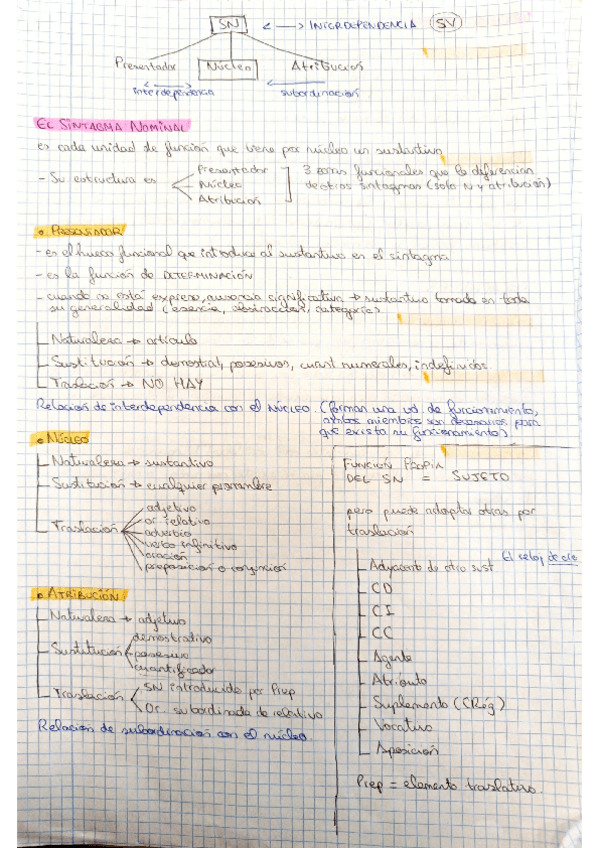 SN <--> INTERDEPENDENCIA SV
Presentador Núcleo Atribución
interdependencia subordinación
EL SINTAGMA NOMINAL
es cada unidad de función que tiene por núcleo un sustantivo
- Su estructura es
Presentador
Núcleo
Atribución
3 zonas funcionales que lo diferencian
de otros sintagmas (solo N y atribución)
• PRESENTADOR
- es el hueco funcional que introduce al sustantivo en el sintagma
- es la función de DETERMINACIÓN
- cuando no está expreso, ausencia significativa → sustantivo tomado en toda
su generalidad (esencia, abstracción, categoría)
Naturaleza → artículo
Sustitución → demostrat, posesivos, cuant numerales, indefinidos
Traslación → NO HAY
Relación de interdependencia con el NÚCLEO. (forman una ud. de funcionamiento,
ambos miembros son necesarios para
que exista su funcionamiento)
• NÚCLEO
Naturaleza → sustantivo
Sustitución → cualquier pronombre
Traslación
adjetivo
or. relativo
adverbio
verbo infinitivo
oración
preposición o conjunción
• ATRIBUCIÓN
Naturaleza → adjetivo
Sustitución
demostrativo
posesivo
cuantificador
Traslación
SN introducido por Prep
Or. subordinada de relativo
Relación de subordinación con el núcleo.
FUNCIÓN PROPIA
DEL SN = SUJETO
pero puede adoptar otras por
traslación
El reloj de oro
Adyacente de otro sust
CD
CI
CC
Agente
Atributo
Suplemento (CRég)
Vocativo
Aposición
Prep = elemento traslativo